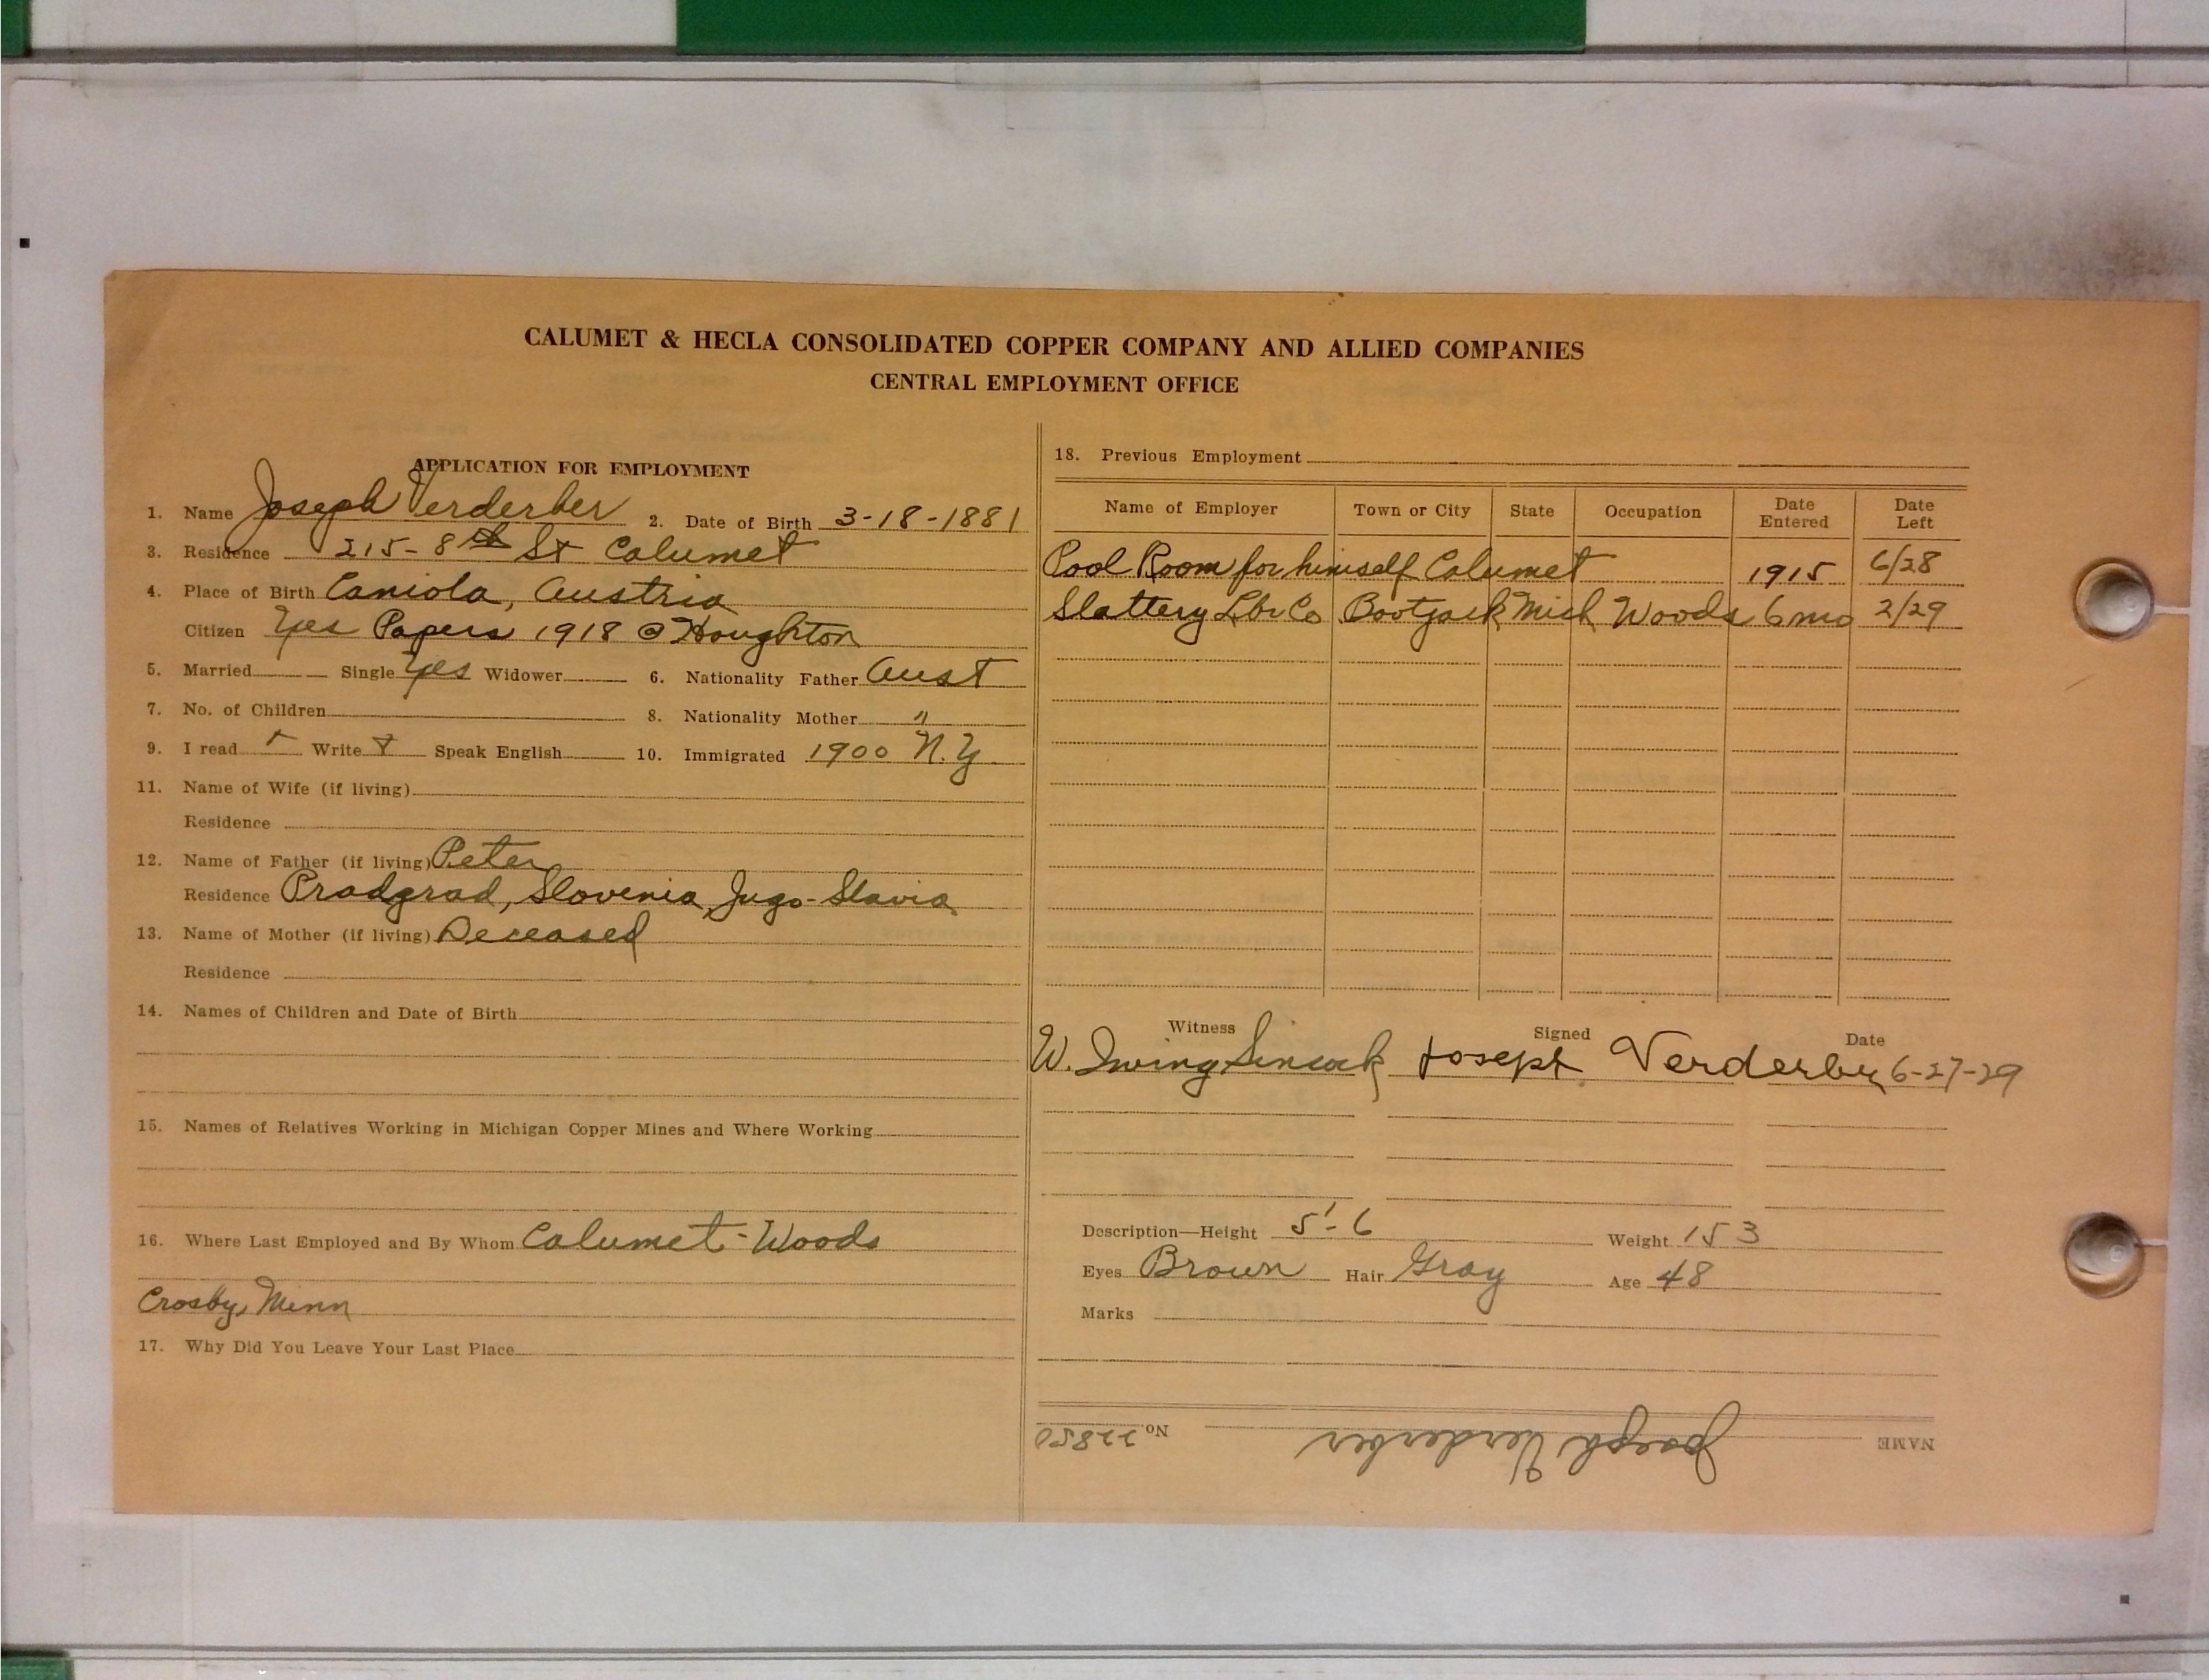 CALUMET & HECLA CONSOLIDATED COPPER COMPANY AND ALLIED COMPANIES
CENTRAL EMPLOYMENT OFFICE
APPLICATION FOR EMPLOYMENT
1. Name Joseph Verderber 2. Date of Birth 3-18-1881
3. Residence 215-8th St Calumet
4. Place of Birth Caniola, Austria
Citizen Yes Papers 1918 @ Houghton
5. Married Single Yes Widower 6. Nationality Father Aust
7. No. of Children 8. Nationality Mother "
9. I read Write Speak English 10. Immigrated 1900 N.Y.
11. Name of Wife (if living)
Residence
12. Name of Father (if living) Peter
Residence Pradgrad, Slovenia, Jugo-Slavia
13. Name of Mother (if living) Deceased
Residence
14. Names of Children and Date of Birth
15. Names of Relatives Working in Michigan Copper Mines and Where Working
16. Where Last Employed and By Whom Calumet-Woods
Crosby, Minn
17. Why Did You Leave Your Last Place
18. Previous Employment
Name of Employer Town or City State Occupation Date Entered Date Left
Pool Room for himself Calumet 1915 6/28
Slattery Lbr Co Bootjack Mich Woods 6 mo 2/29
Witness Signed Date
W. Irving Joseph Verderber 6-27-29
Description—Height 5'-6 Weight 153
Eyes Brown Hair Gray Age 48
Marks
NAME Joseph Verderber No. 22850